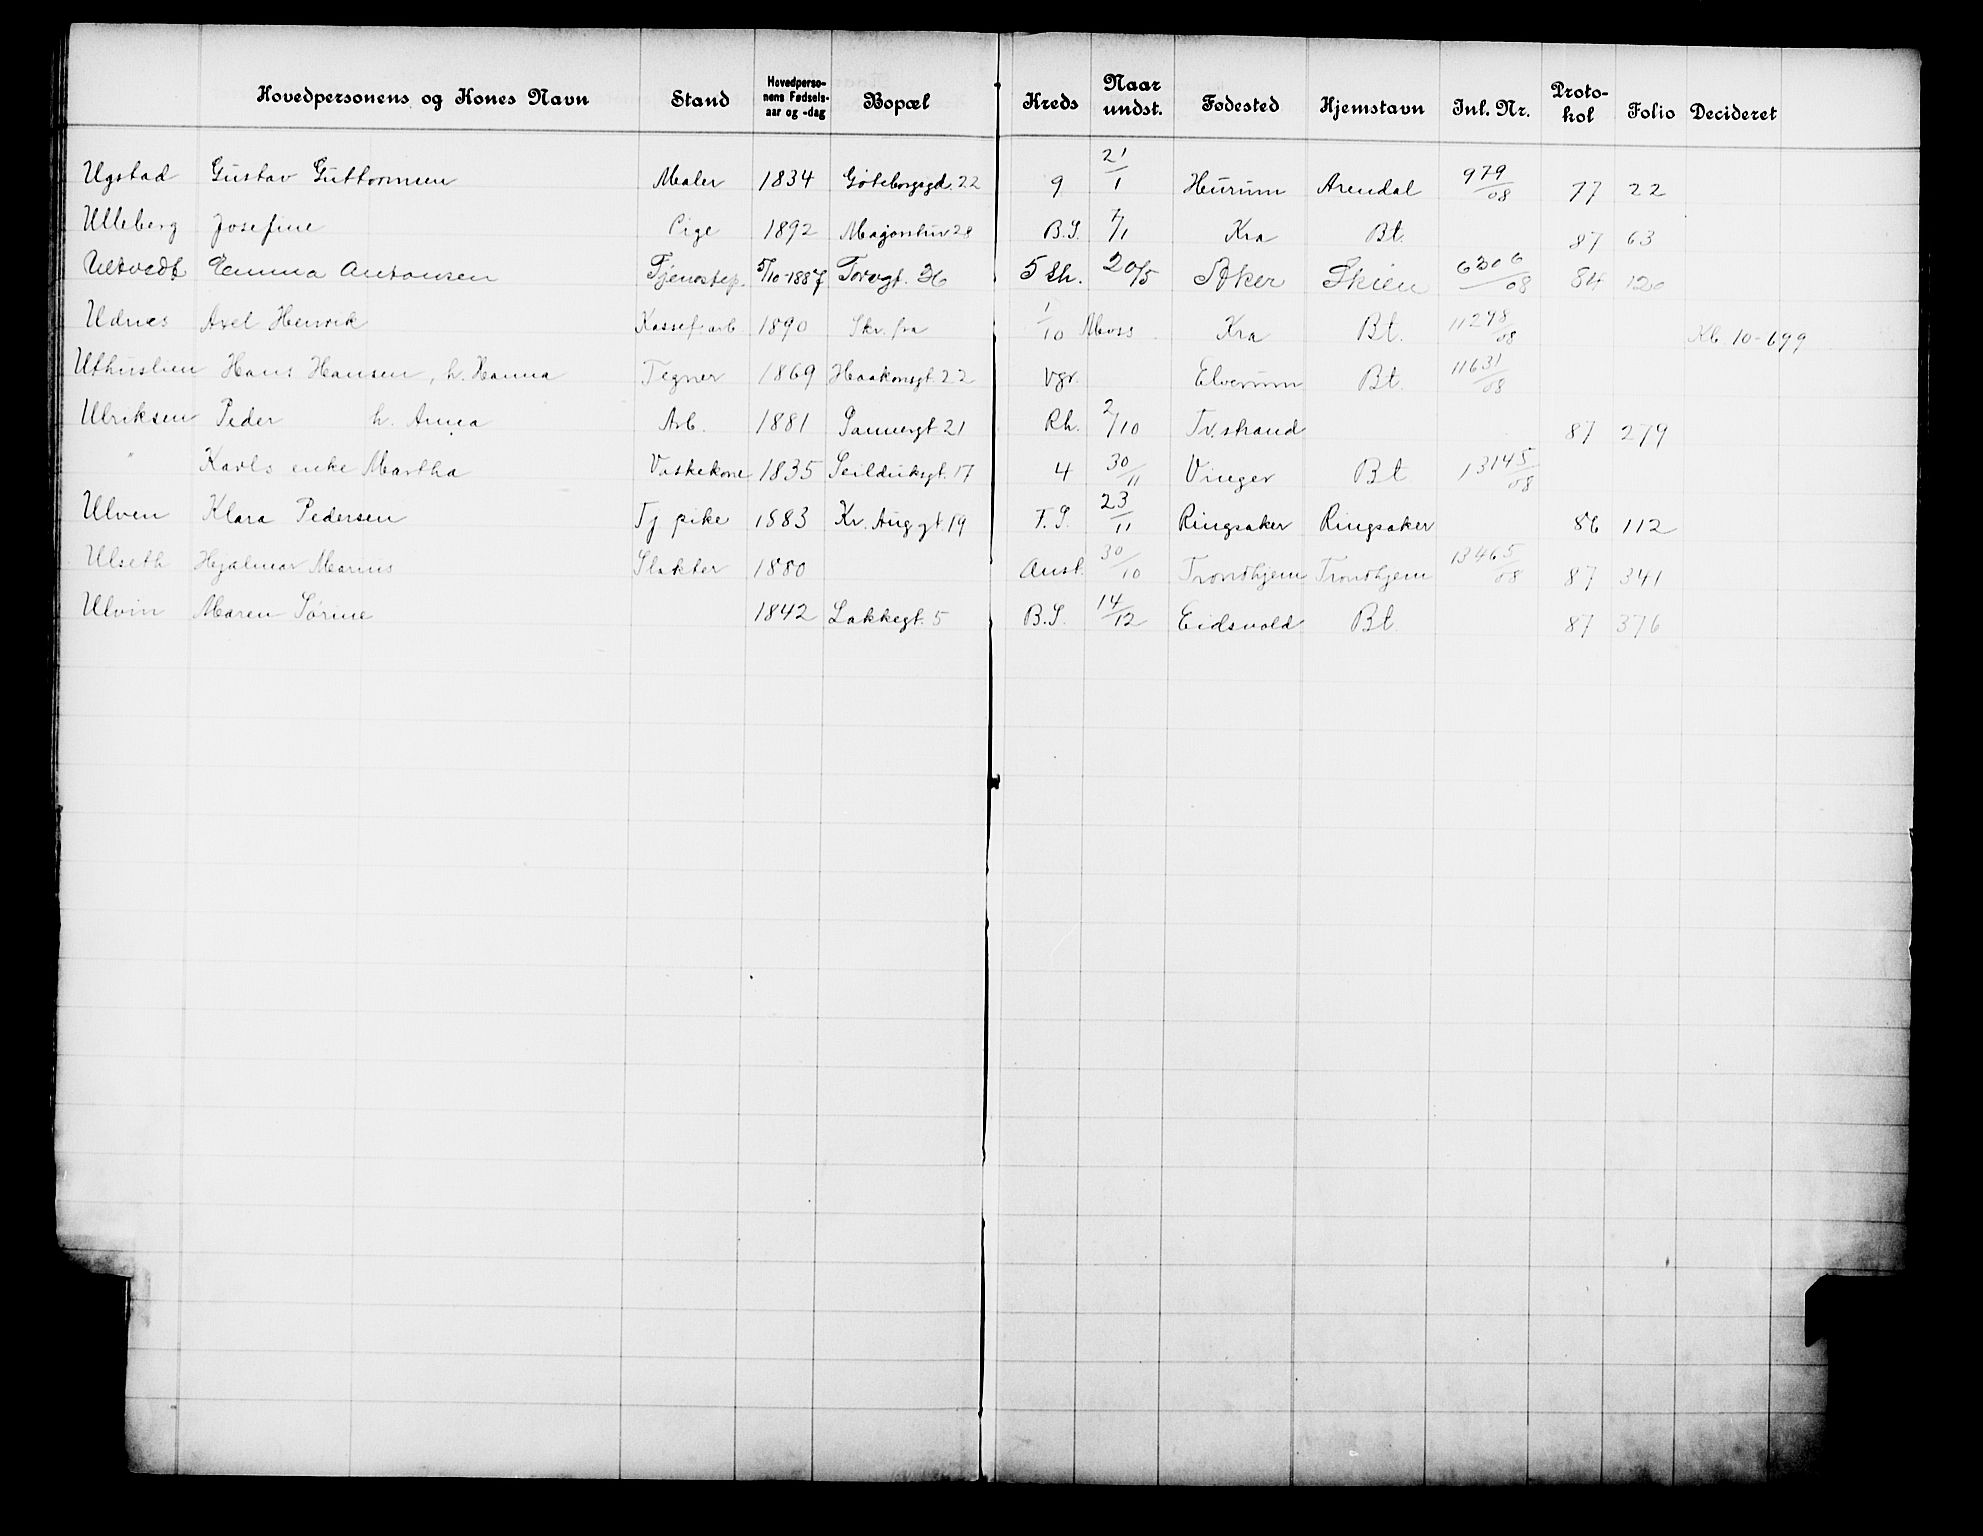 Hovedpersonens og Kones Navn Stand Hovedpersonens Fødselsaar og -dag Bopæl Kreds Naar undst. Fødested Hjemstavn Inl. Nr. Protokol Folio Decideret
Ugstad Gustav Guttormsen Maler 1834 Göteborggd. 22 9 21/1 Hurum Arendal 979/08 77 22
Ulleberg Josefine Pige 1892 28 B.S. 7/1 Kra Bt. 87 63
Ultvedt Emma Antonsen Tjenestep. 5/10-1887 Torvgt. 36 5 Lh. 20/5 Aker Skien 6306/08 84 120
Udnes Axel Henrik 1890 Skr. fra 1/10 Moss Kra Bt. 11298/08 Kb. 10-699
Uthuslien Hans Hansen, h. Hanna Tegner 1869 Haakonsgt. 22 Vgr. Elverum Bt. 11631/08
Ulriksen Peder h. Anna Arb. 1881 21 Rh. 2/10 Tv.strand 87 279
" Karls enke Martha Vaskekone 1835 Seilduksgt. 17 4 30/11 Vinger Bt 13145/08
Ulven Klara Pedersen Tj pike 1883 Kr. Aug gt. 19 T. S. 23/11 Ringsaker Ringsaker 86 112
Ulseth Hjalmar Marius Slakter 1880 Anst. 30/10 Trondhjem Trondhjem 13465/08 87 341
Ulvin Maren Sørine 1842 Lakkegt. 5 B.S. 14/12 Eidsvold Bt 87 376